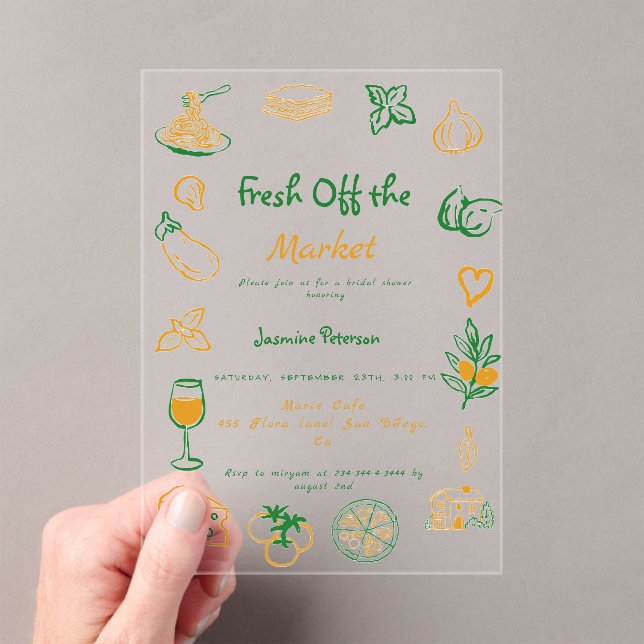 Fresh Off the
Market
Please join us for a bridal shower
honoring
Jasmine Peterson
SATURDAY, SEPTEMBER 23TH, 3:00 PM
Marie Cafe
455 Flora lane! San Diego,
Ca
Rsvp to miryam at 234-344-4-3444 by
august 2nd